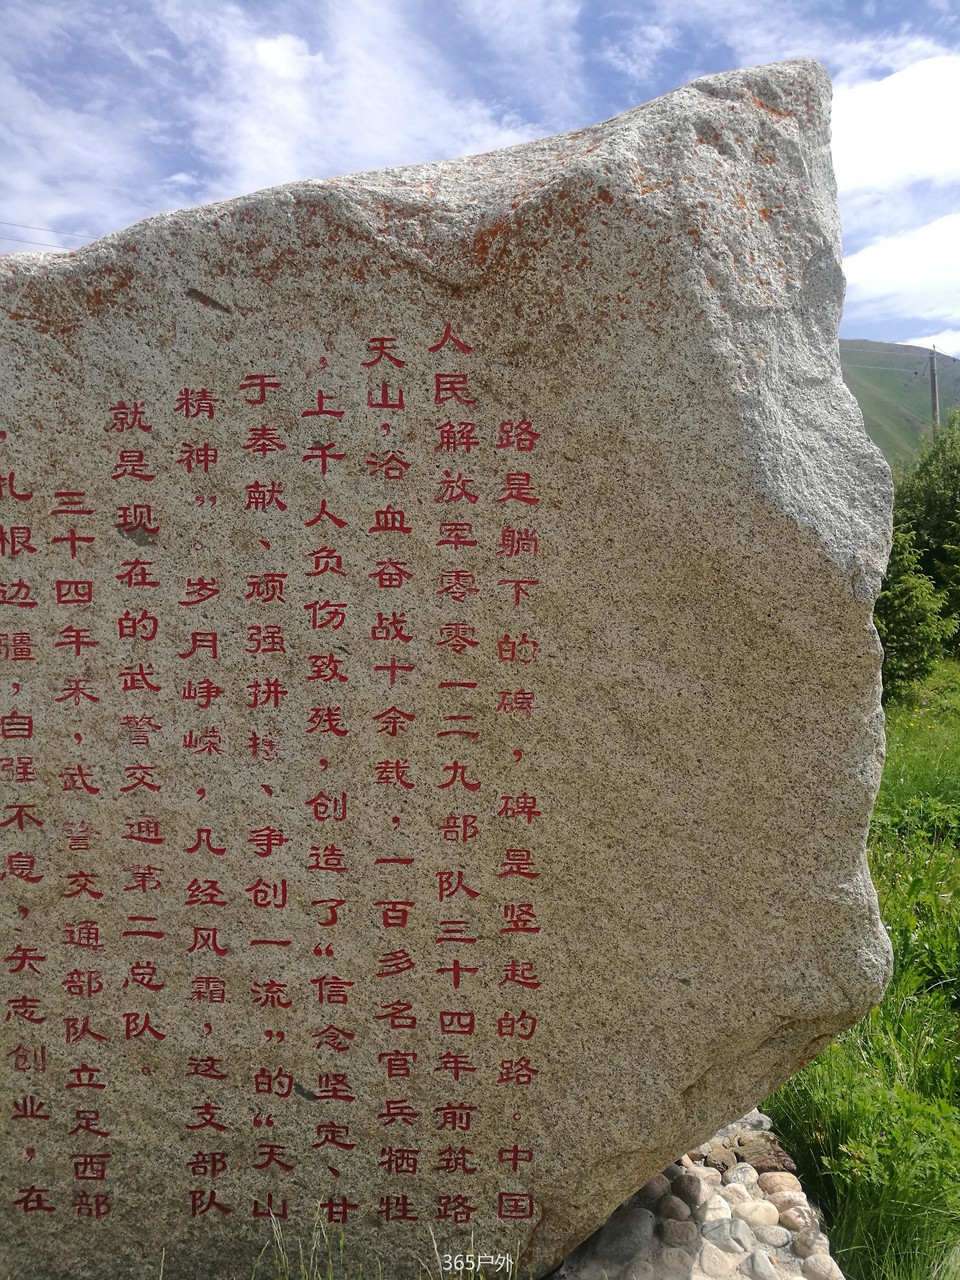 路是躺下的碑，碑是竖起的路。中国
人民解放军零零一二九部队三十四年前筑路
天山，浴血奋战十余载，一百多名官兵牺牲
，上千人负伤致残，创造了“信念坚定、甘
于奉献、顽强拼搏、争创一流”的“天山
精神”。岁月峥嵘，几经风霜，这支部队
就是现在的武警交通第二总队。
三十四年来，武警交通部队立足西部
，扎根边疆，自强不息，矢志创业，在
365户外